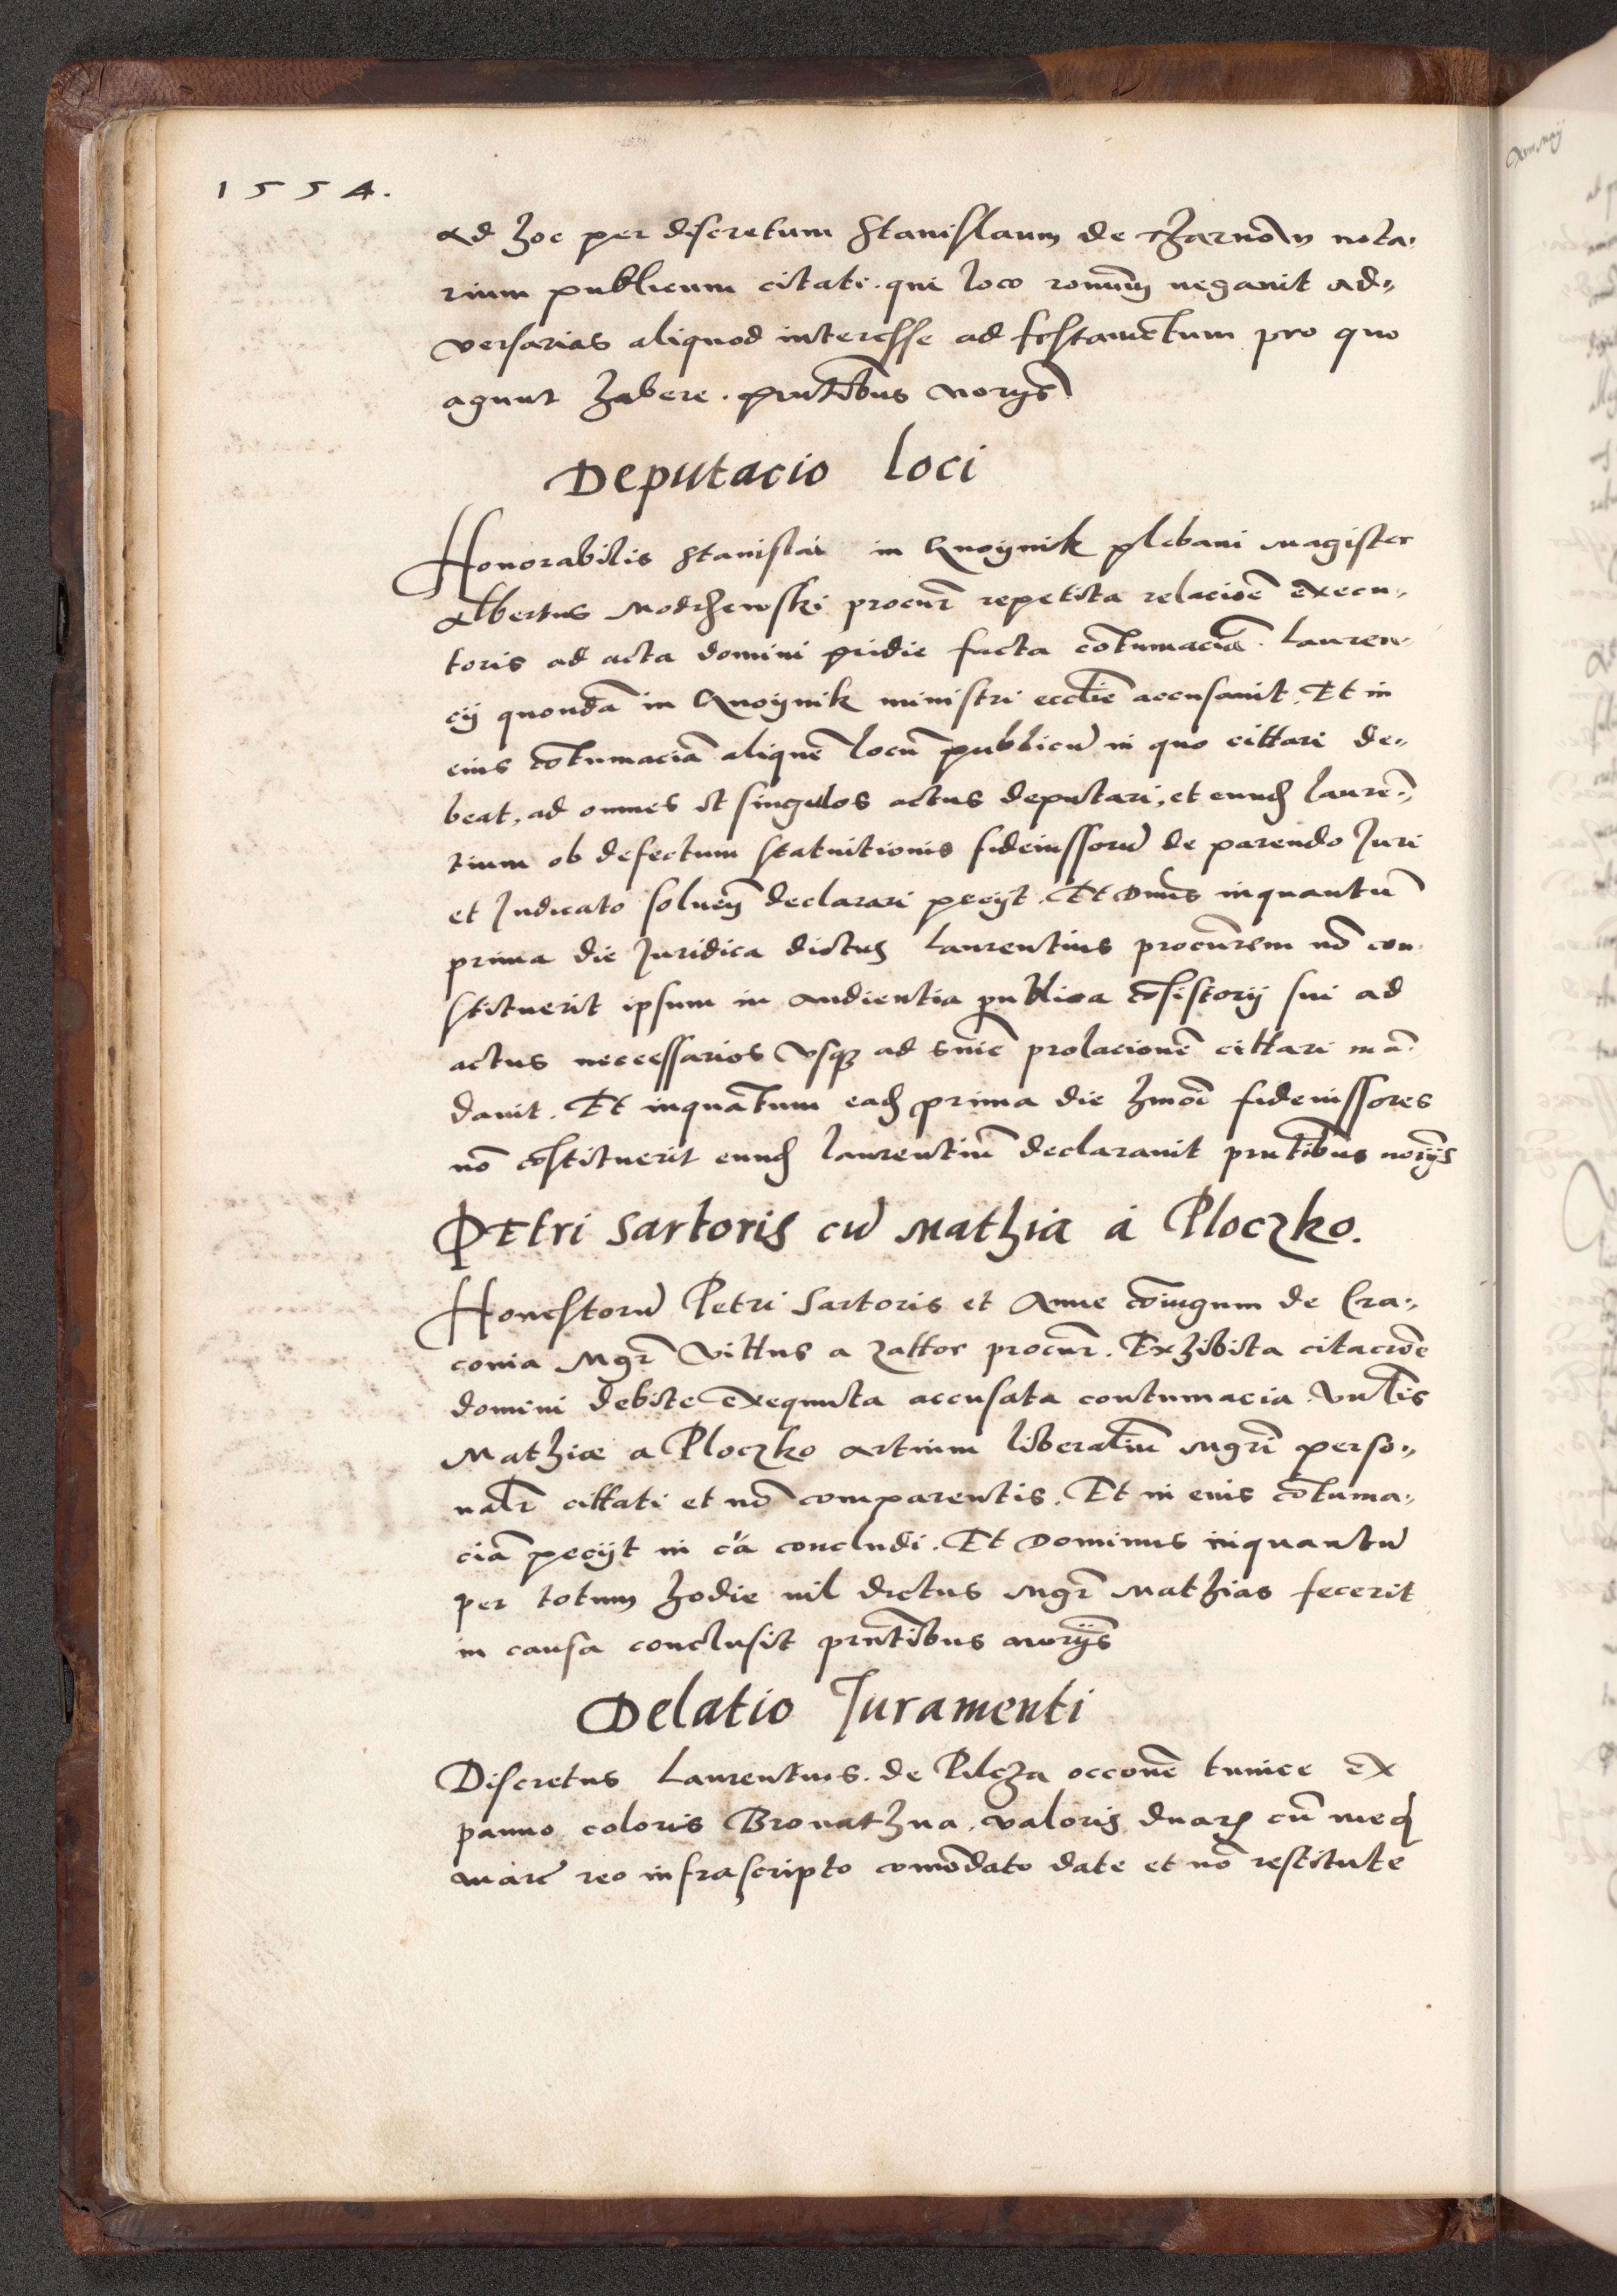 1554.
ad hoc per discretum Stanislaum de Czarnōw nota,
rium publicum citati. qui loco ronum̄ negavit ad,,
versarias aliquod interesse ad testamentum pro quo
agunt habere. pn̄tibus noryȿ
Deputacio loci
Honorabilis Stanislai in Gnoynik plebani Magister
Albertus Modrzewski procur̄ repetita relacioē execu,
toris ad acta domini pridie facta cōtumaciā. Lauren,
cij quondā in Gnoynik ministri eccl̄ie accusavit. Et in
eius cōtumaciā aliquē locū publicū in quo cittari de,,
beat, ad omnes et singulos actus deputari, et eundꝫ Laurē,,
tium ob defectum statuitionis fideiussorū de parendo Juri
et Judicato solven̄ declarari pecijt. Et Dn̄us inquantū
prima die Juridica dictus Laurentius procur̄em nō con,
stituerit ipsum in audientia publica cōsistorij sui ad
actus neccessarios usqꝫ ad sn̄ie prolacionē cittari mā,
davit. Et inquātum eadꝫ prima die hm̄oi fideiussores
nō cōstituerit eundꝫ Laurentiū declaravit pn̄tibus norijs
Petri Sartoris cū Mathia á Ploczko.
Honestorū Petri Sartoris et Anne cōiugum de Cra,,
covia Mgr̄ Vittus a Zattor procur̄. Exhibita citacioē
domini debite exequuta accusata contumacia.
Mathiæ a Ploczko artium liberaliū Mgr̄i perso,,
nalr̄ cittati et nō comparentis. Et in eius cōtuma,
ciā pecijt in cā concludi. Et Dominus inquantū
per totum hodie nil dictus Mgr̄ Mathias fecerit
in causa conclusit pn̄tibus norijs
Delatio Juramenti
Discretus Laurentius. de Pilcza occōne tunice ex
panno coloris Bronathna, valoris duarꝫ cū medꝫ
marc̄ reo infrascripto comōdato date et nō restitute